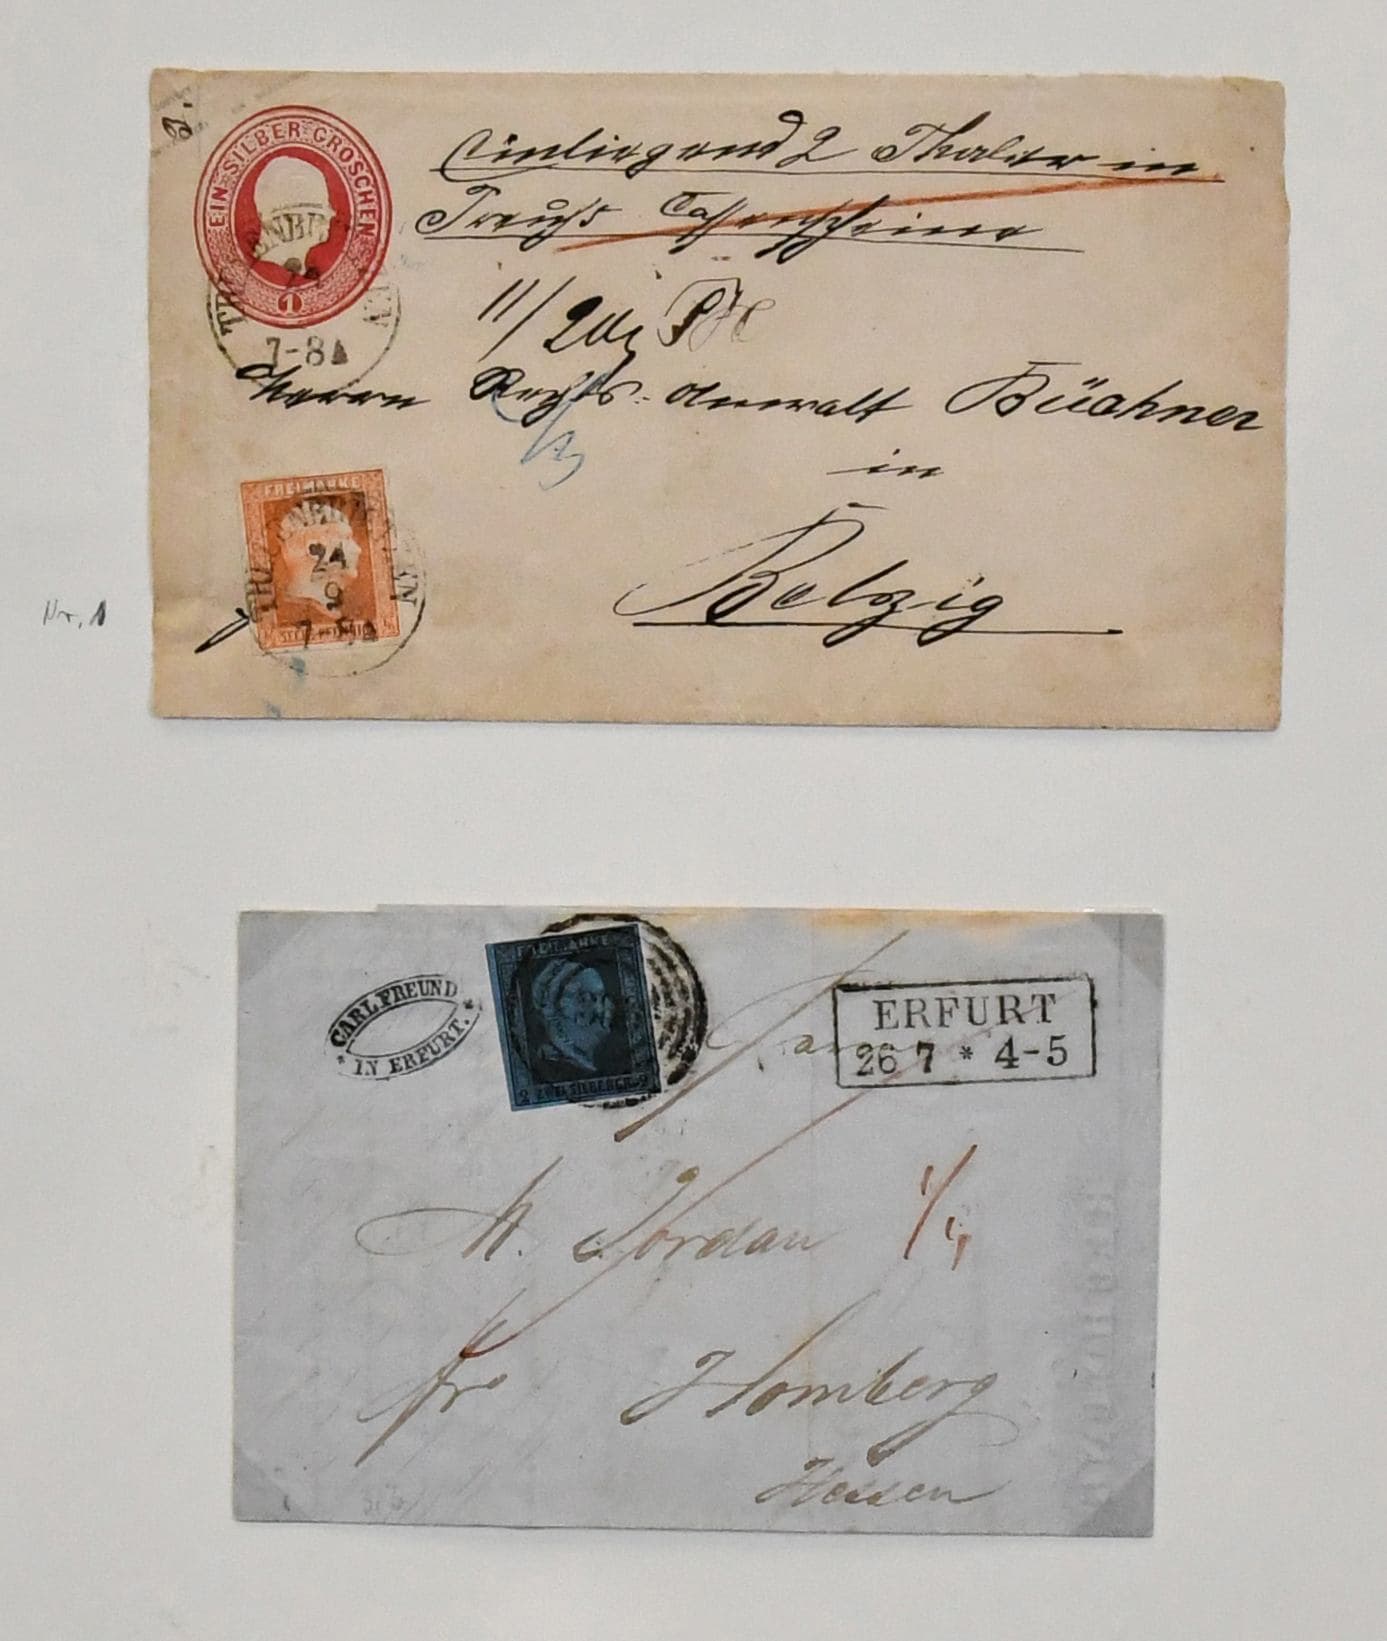 2.
EIN SILBER GROSCHEN
1
24
7-8A
Einliegend 2 Thaler in
Preuß Cassenscheine
11/
Herrn Rechts-Anwalt Büchner
in
Belzig
FREIMARKE
TREUENBRIETZEN
24
9
7-8A
Nr. 1
FREIMARKE
2 ZWEI SILBERGR. 2
* CARL FREUND *
IN ERFURT.
ERFURT
26 7 * 4-5
M. Jordan
fro Homberg
Hessen